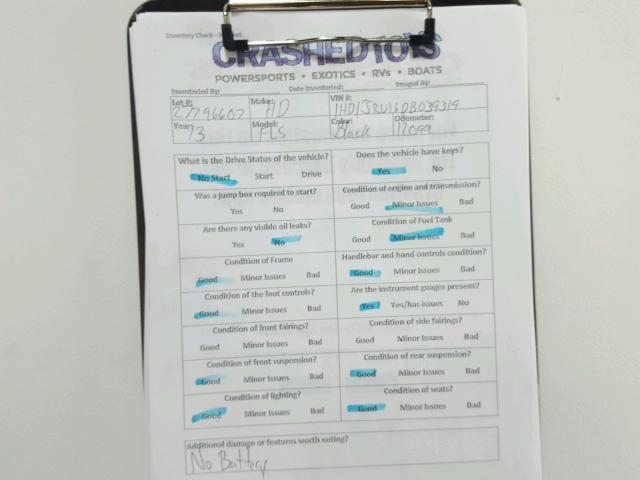 Inventory Check -
CRASHEDTOYS
POWERSPORTS • EXOTICS • RVs • BOATS
Inventoried By: Date Inventoried: Imaged By:
Lot #: Make: VIN #:
27796607 HD
Year: Model: Color: Odometer:
13 FLS Black 12099
What is the Drive Status of the vehicle? Does the vehicle have keys?
No Start Start Drive Yes No
Was a jump box required to start? Condition of engine and transmission?
Yes No Good Minor Issues Bad
Are there any visible oil leaks? Condition of Fuel Tank
Yes No Good Minor Issues Bad
Condition of Frame Handlebar and hand controls condition?
Good Minor Issues Bad Good Minor Issues Bad
Condition of the foot controls? Are the instrument guages present?
Good Minor Issues Bad Yes Yes/has issues No
Condition of front fairings? Condition of side fairings?
Good Minor Issues Bad Good Minor Issues Bad
Condition of front suspension? Condition of rear suspension?
Good Minor Issues Bad Good Minor Issues Bad
Condition of lighting? Condition of seats?
Good Minor Issues Bad Good Minor Issues Bad
Additional damage or features worth noting?
No Battery